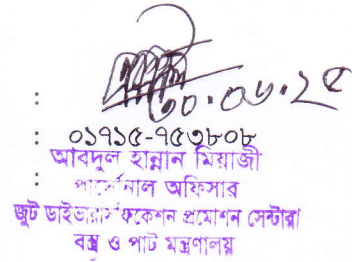 ৩০.০৬.২৫
:
: ০১৭১৫-৭৫৩৮০৮
আবদুল হান্নান মিয়াজী
: পার্সোনাল অফিসার
জুট ডাইভারসিফিকেশন প্রমোশন সেন্টার
বস্ত্র ও পাট মন্ত্রণালয়